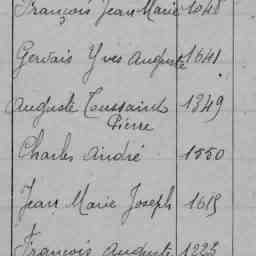 François Jean Marie 1048
Gervais Yves Auguste 1641
Auguste Toussaint 1349
Pierre
Charles André 1550
Jean Marie Joseph 1615
François Auguste 1223